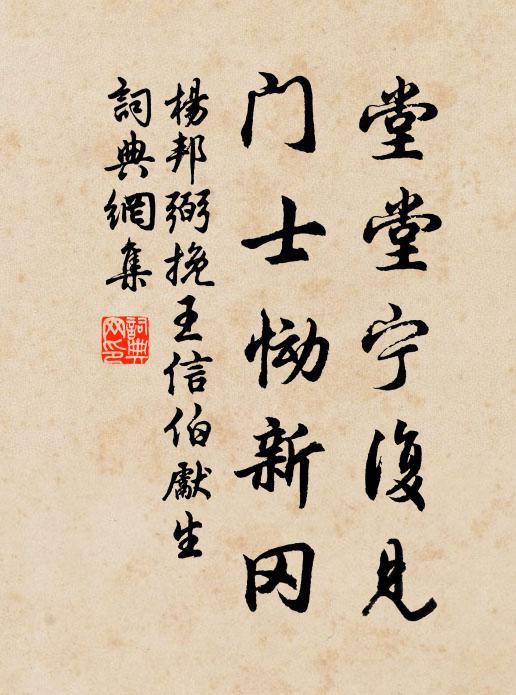 堂堂宁復見
门士恸新冈
楊邦弼挽王信伯獻生
詞典網集
詞典網印